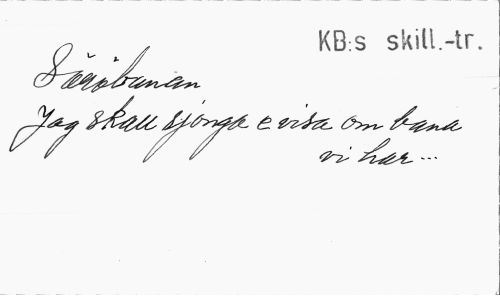 KB:s skill.-tr.
Säröbanan
Jag skall sjonga e visa om bana
vi har...